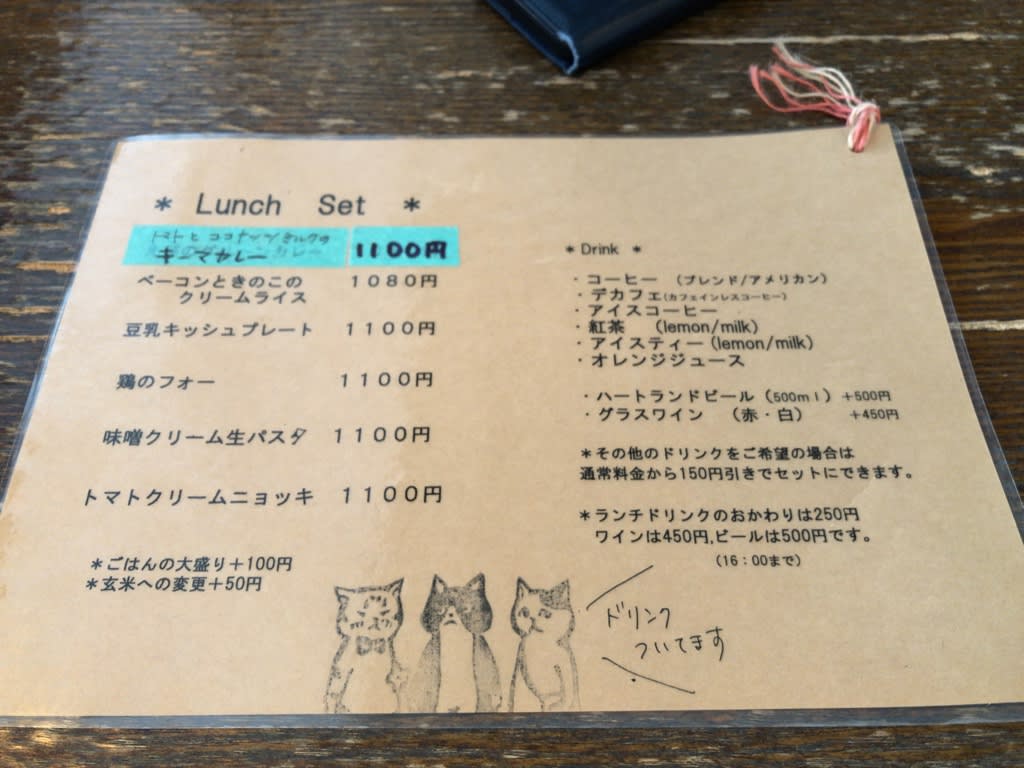 * Lunch Set *
トマトとココナッツミルクの
キーマカレー 1100円
ベーコンときのこの 1080円
クリームライス
豆乳キッシュプレート 1100円
鶏のフォー 1100円
味噌クリーム生パスタ 1100円
トマトクリームニョッキ 1100円
*ごはんの大盛り+100円
*玄米への変更+50円
* Drink *
・コーヒー (ブレンド/アメリカン)
・デカフェ(カフェインレスコーヒー)
・アイスコーヒー
・紅茶 (lemon/milk)
・アイスティー(lemon/milk)
・オレンジジュース
・ハートランドビール(500ml)+500円
・グラスワイン (赤・白) +450円
*その他のドリンクをご希望の場合は
通常料金から150円引きでセットにできます。
*ランチドリンクのおかわりは250円
ワインは450円,ビールは500円です。
(16:00まで)
ドリンク
ついてます